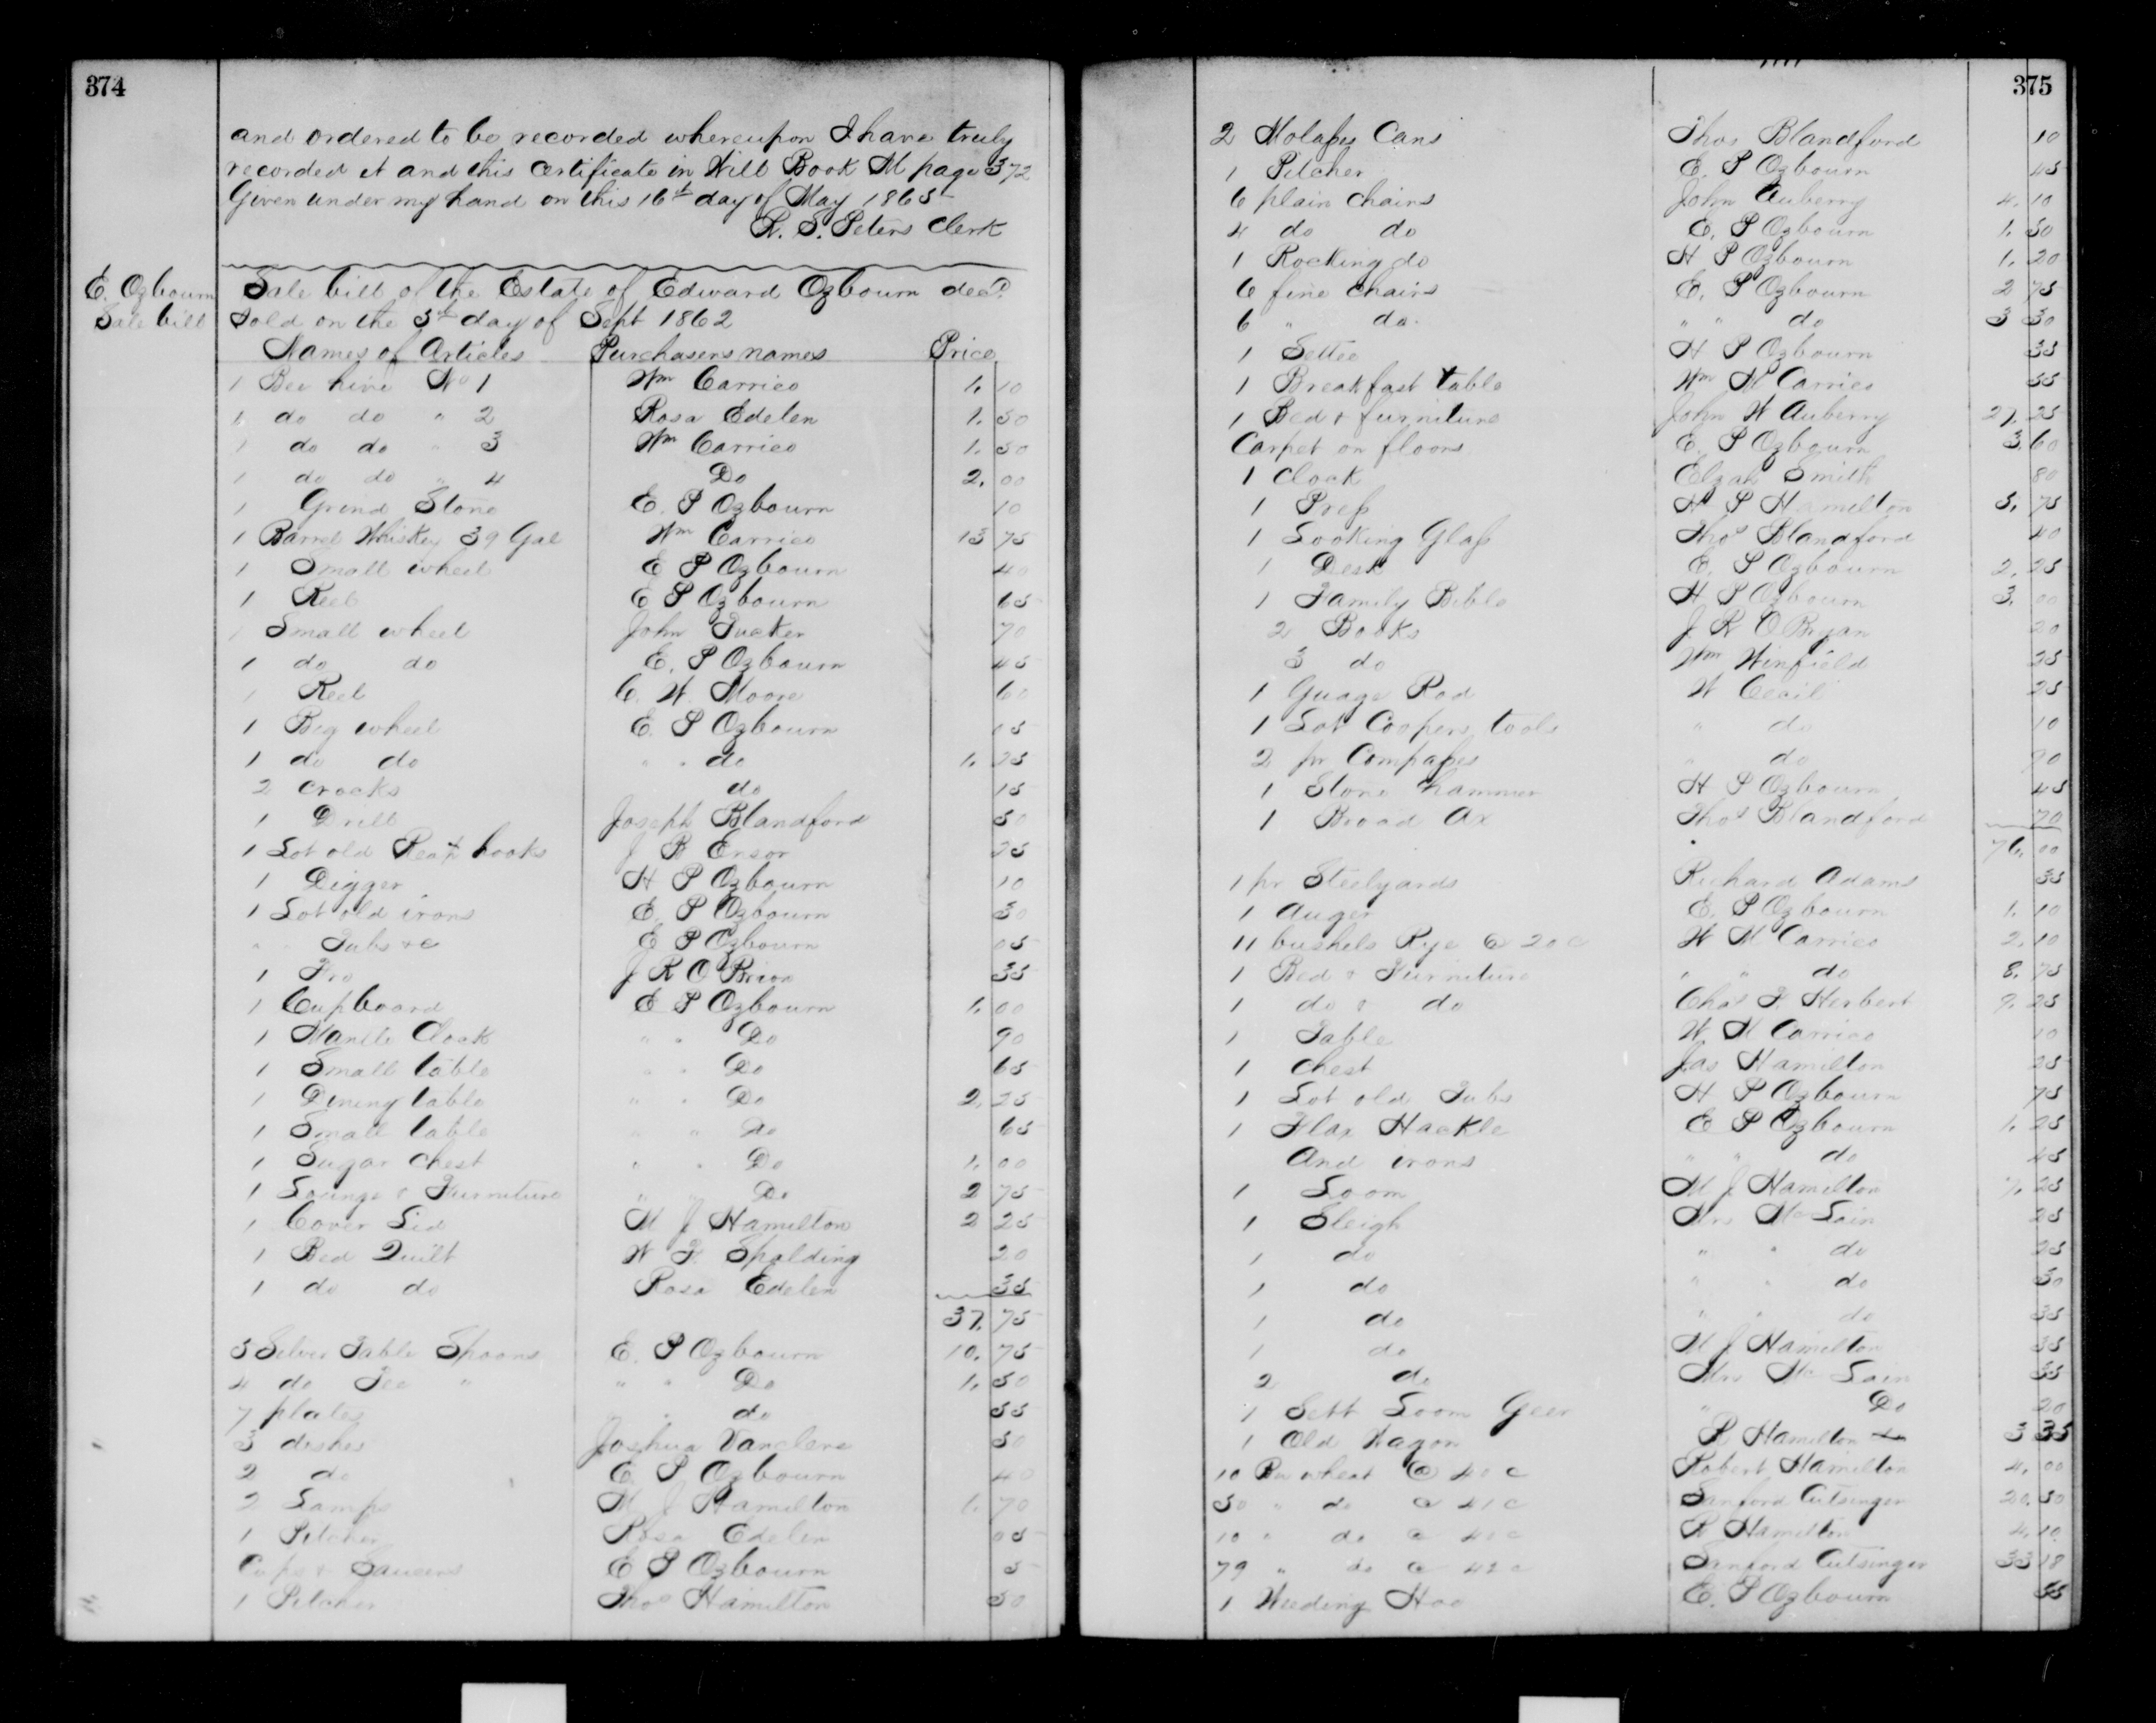 374
and ordered to be recorded whereupon I have truly
recorded it and this Certificate in Will Book M page 372
Given under my hand on this 16th day of May 1865
R. S. Peters Clerk
E. Ozbourn
Sale bill
Sale bill of the Estate of Edward Ozbourn decd.
Sold on the 5th day of Sept 1862
Names of Articles Purchasers names Price
1 Bee hive No 1 Wm Carrico 1. 10
1 do do " 2 Rosa Edelen 1. 50
1 do do " 3 Wm Carrico 1. 50
1 do do " 4 Do 2. 00
1 Grind Stone E. P Ozbourn 10
1 Barrel Whiskey 39 Gal Wm Carrico 13 75
1 Small wheel E P Ozbourn 40
1 Reel E P Ozbourn 65
1 Small wheel John Tucker 70
1 do do E. P Ozbourn 45
1 Reel C. W. Moore 60
1 Big wheel E. P Ozbourn 05
1 do do " " do 1. 25
2 Crocks do 15
1 Drill Joseph Blandford 50
1 Lot old Reap hooks J B Ensor 25
1 Digger H P Ozbourn 10
1 Lot old irons E. P Ozbourn 30
" " Tubs &c E P Ozbourn 05
1 Fro J R O Brion 35
1 Cupboard E P Ozbourn 1. 00
1 Mantle Clock " " Do 90
1 Small table " " Do 65
1 Dining table " " Do 2. 25
1 Small table " " Do 65
1 Sugar Chest " " Do 1. 00
1 Lounge & Furniture " " Do 2 75
1 Cover Lid M J Hamilton 2 25
1 Bed Quilt W F. Spalding 20
1 do do Rosa Edelen 35
37. 75
5 Silver Table Spoons E. P Ozbourn 10. 75
4 do Tea " " " Do 1. 50
7 plates " do 55
3 dishes Joshua Vanclene 50
2 do E. P. Ozbourn 40
2 Lamps M J Hamilton 1. 70
1 Pitcher Rosa Edelen 05
Cups & Saucers E P Ozbourn 5
1 Pitcher Thos Hamilton 50
375
2 Molasses Cans Thos Blandford 10
1 Pitcher E. P Ozbourn 45
6 plain chairs John Auberry 4. 10
4 do do E. P Ozbourn 1. 50
1 Rocking do H P Ozbourn 1. 20
6 fine chairs E. P Ozbourn 2 75
6 " do. " " do 3 30
1 Settee H P Ozbourn 35
1 Breakfast table Wm M Carrico 55
1 Bed & furniture John W Auberry 27. 25
Carpet on floors E. P Ozbourn 3. 60
1 Clock Elzah Smith 80
1 Press H P Hamilton 5. 75
1 Looking Glass Thos Blandford 40
1 Desk E. P Ozbourn 2. 25
1 Family Bible H P Ozbourn 3. 00
2 Books J R O Bryan 20
3 do Wm Winfield 25
1 Guage Rod W Cecil 25
1 Lot Coopers tools " do 10
2 pr Compasses " do 90
1 Stone hammer H P Ozbourn 45
1 Broad Ax Thos Blandford 70
76. 00
1 pr Steelyards Richard Adams 35
1 Auger E. P Ozbourn 1. 10
11 bushels Rye @ 20 c W M Carrico 2. 10
1 Bed & Furniture " " do 8. 75
1 do & do Chas F Herbert 9. 25
1 Table W M Carrico 10
1 Chest Jas Hamilton 25
1 Lot old Tubs H P Ozbourn 75
1 Flax Hackle E P Ozbourn 1. 25
And irons " " do 45
1 Loom M J Hamilton 7. 25
1 Sleigh Mrs Mc Lain 25
1 do " " do 25
1 do " " do 30
1 do " " do 35
1 do M J Hamilton 35
2 do Mrs Mc Lain 35
1 Sett Loom Geer " Do 20
1 Old Wagon R Hamilton 3 35
10 Bu wheat @ 40 c Robert Hamilton 4. 00
50 " do @ 41 c Sanford Cutsinger 20. 50
10 " do @ 40 c R Hamilton 4. 10
79 " do @ 42 c Sanford Cutsinger 33 18
1 Weeding Hoe E. P Ozbourn 55